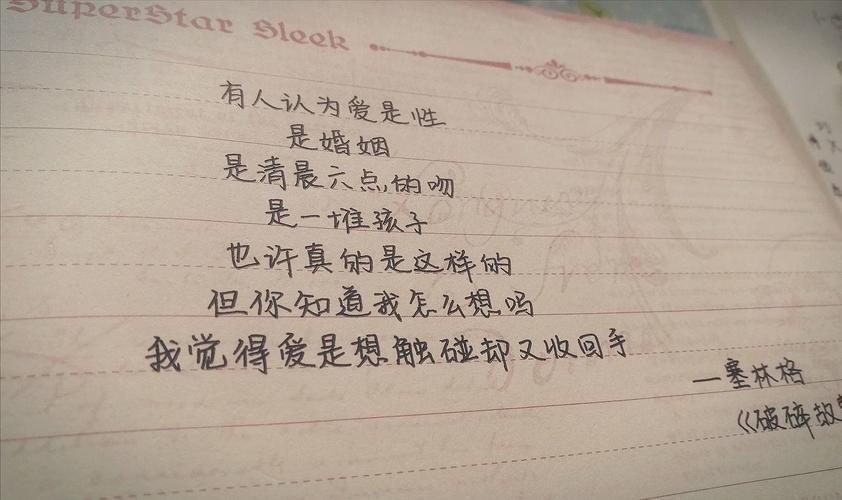 SuperStar Sleek
有人认为爱是性
是婚姻
是清晨六点的吻
是一堆孩子
也许真的是这样的
但你知道我怎么想吗
我觉得爱是想触碰却又收回手
—塞林格
《破碎故